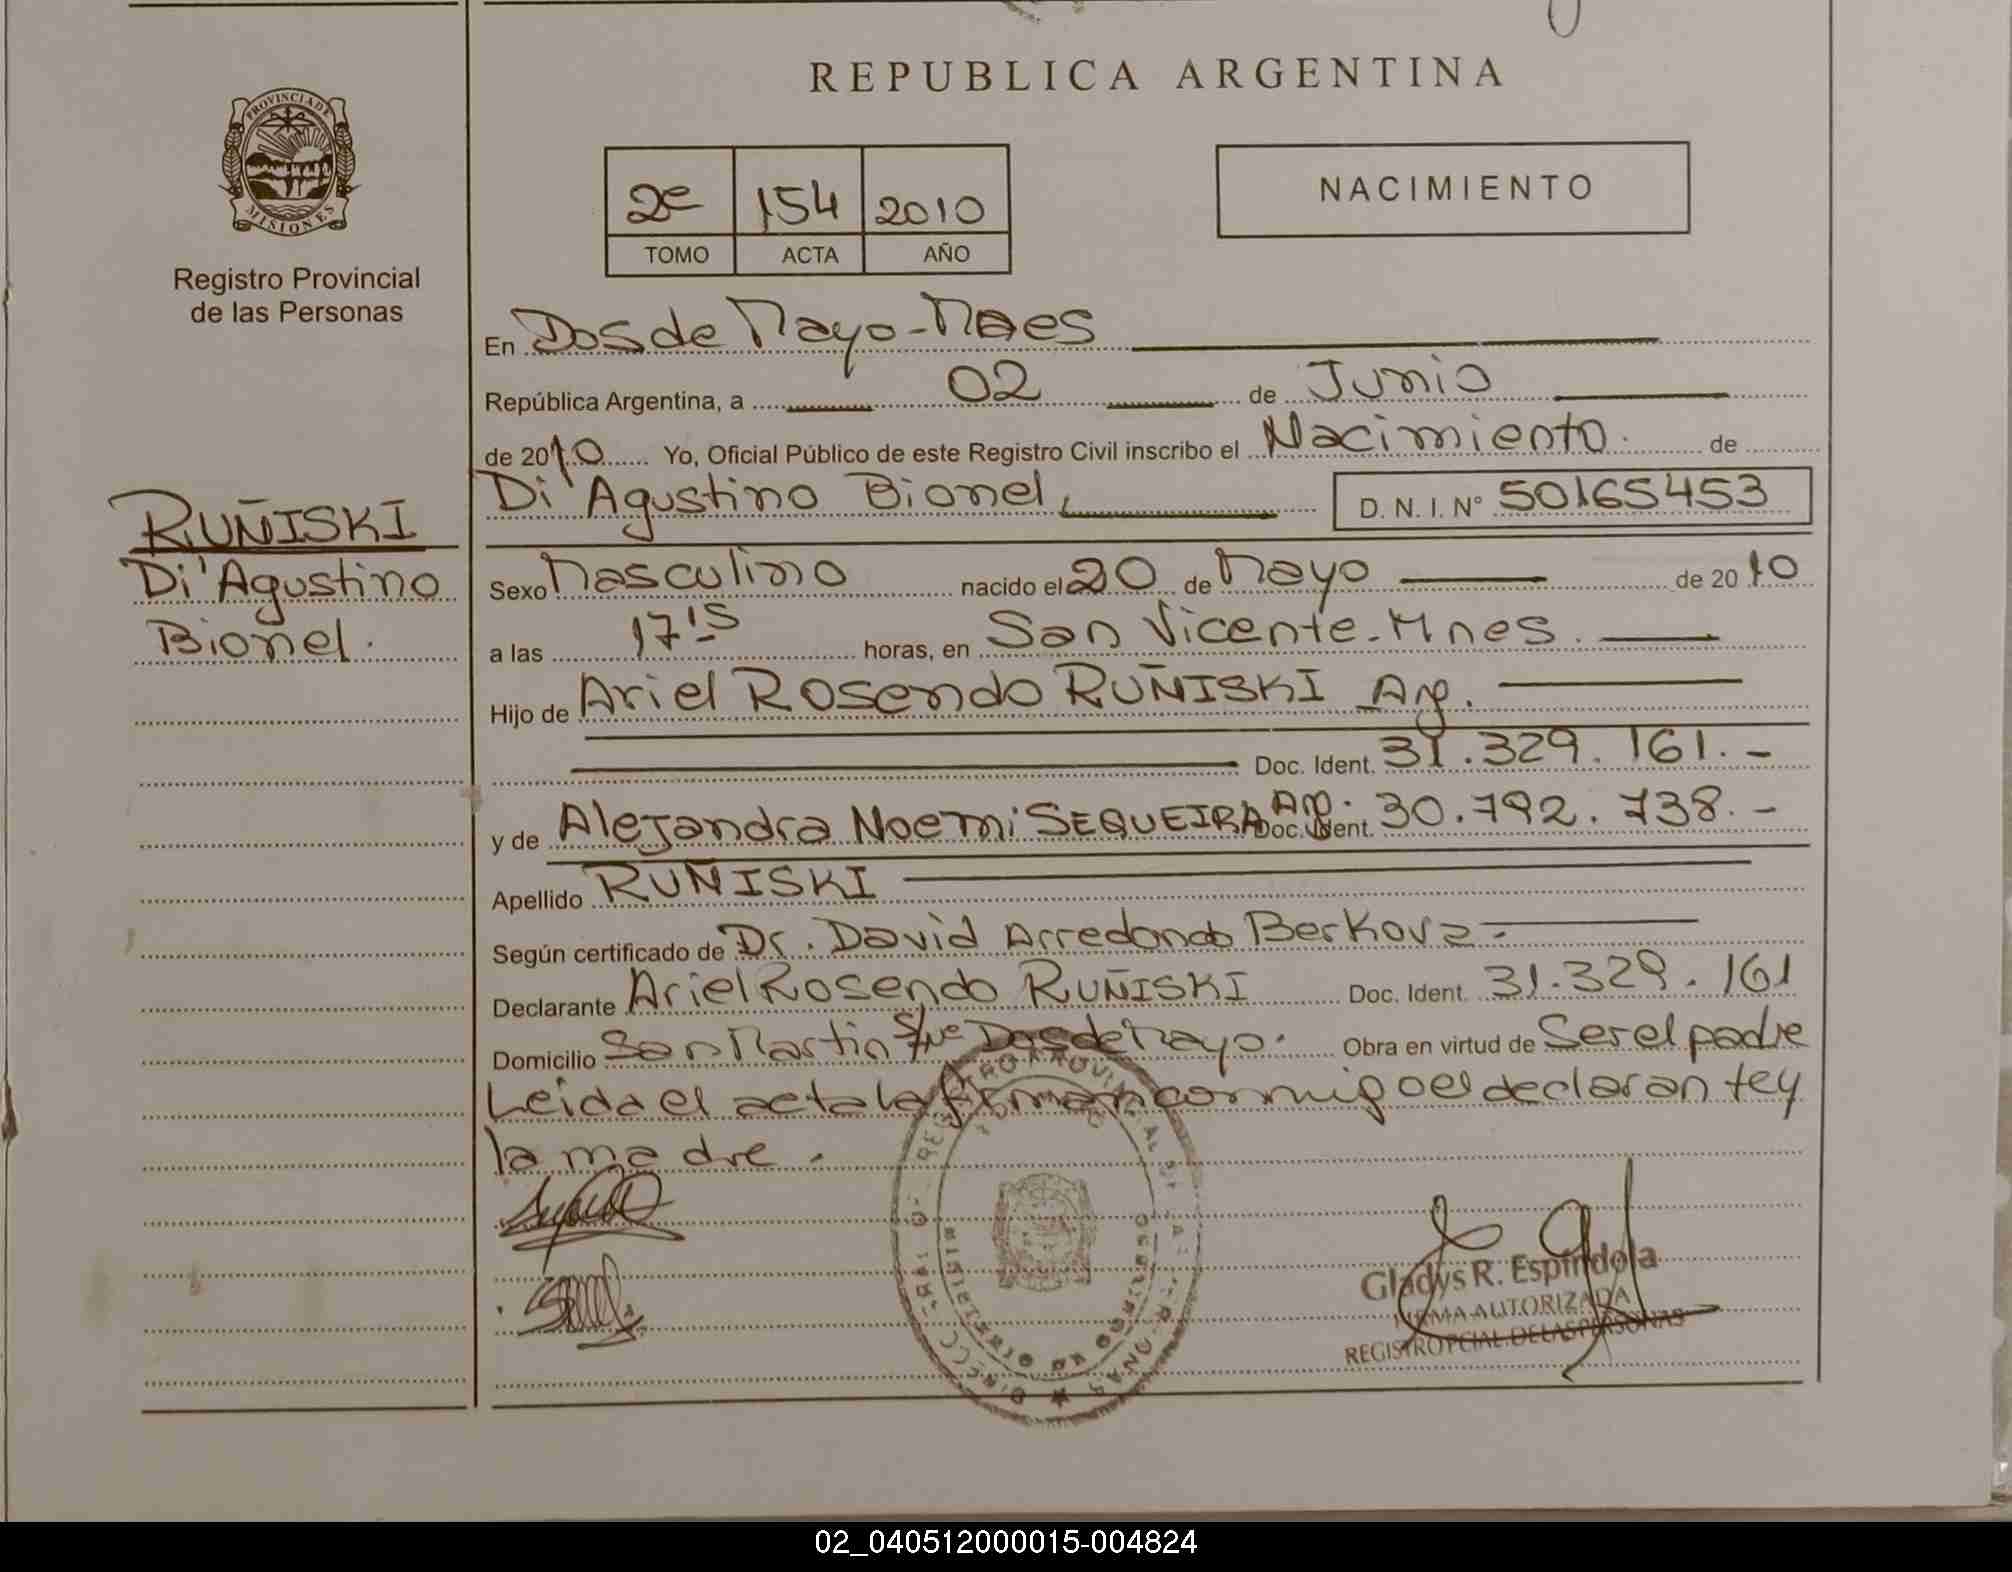 REPUBLICA ARGENTINA
PROVINCIA DE
MISIONES
Registro Provincial
de las Personas
2e 154 2010
TOMO ACTA AÑO
NACIMIENTO
RUÑISKI
Di'Agustino
Bionel.
En Dos de Mayo-Mnes
República Argentina, a 02 de Junio
de 2010 Yo, Oficial Público de este Registro Civil inscribo el Nacimiento. de
Di'Agustino Bionel, D. N. I. Nº 50165453
Sexo Masculino nacido el 20 de Mayo de 2010
a las 17'15 horas, en San Vicente-Mnes.
Hijo de Ariel Rosendo RUÑISKI Arg.
Doc. Ident. 31.329.161.-
y de Alejandra Noemi SEQUEIRA Arg. Doc. Ident. 30.792.738.-
Apellido RUÑISKI
Según certificado de Dr. David Arredondo Berkovz-
Declarante Ariel Rosendo RUÑISKI Doc. Ident. 31.329.161
Domicilio San Martin S/Nº Dos de Mayo. Obra en virtud de Ser el padre
Leida el acta la firman conmigo el declarante y
la madre.
Gladys R. Espindola
FIRMA AUTORIZADA
REGISTRO PCIAL. DE LAS PERSONAS
02_040512000015-004824